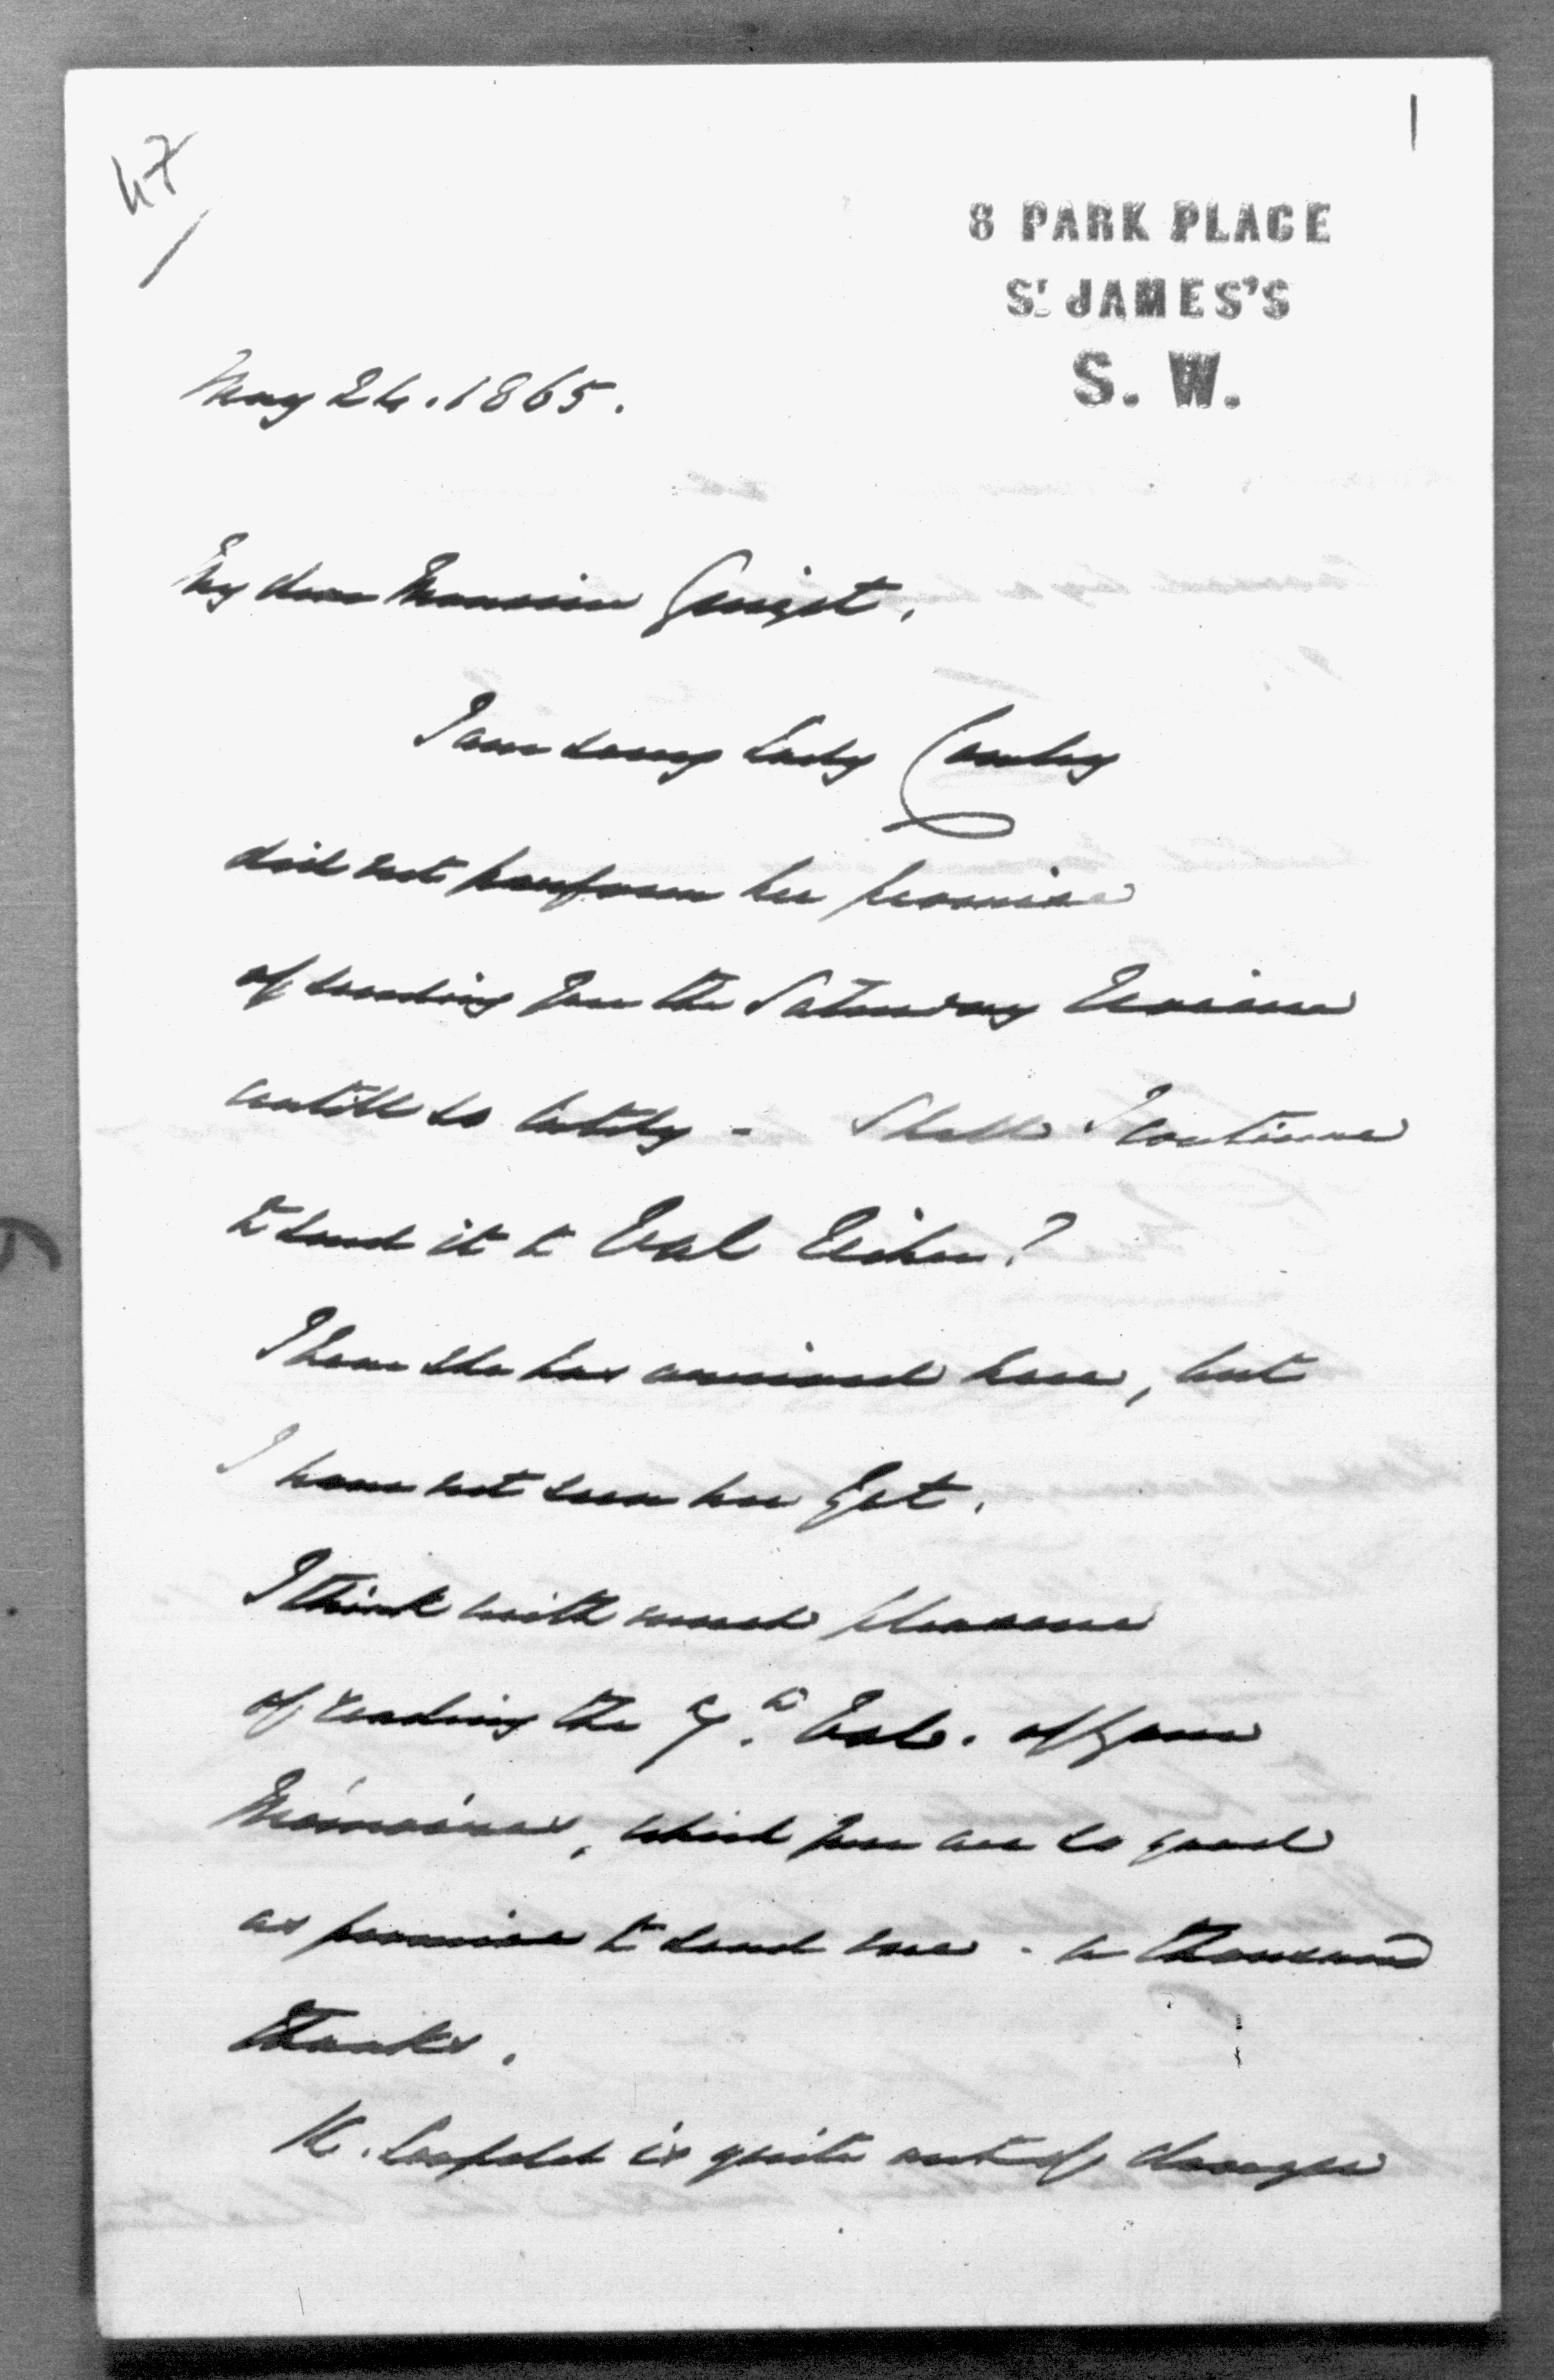 47
1
8 PARK PLACE
St JAMES'S
S. W.
May 24. 1865.
My dear Monsieur Guizot,
I am sorry Lady Cowley
did not perform her promise
of sending you the Saturday Review
untill so lately - Shall I continue
to send it to Val Richer?
I hear she has arrived here, but
I have not seen her yet.
I think with much pleasure
of reading the 7.th Vol. of your
Mémoires, which you are so good
as promise to send me - a thousand
thanks.
K. Leopold is quite out of danger